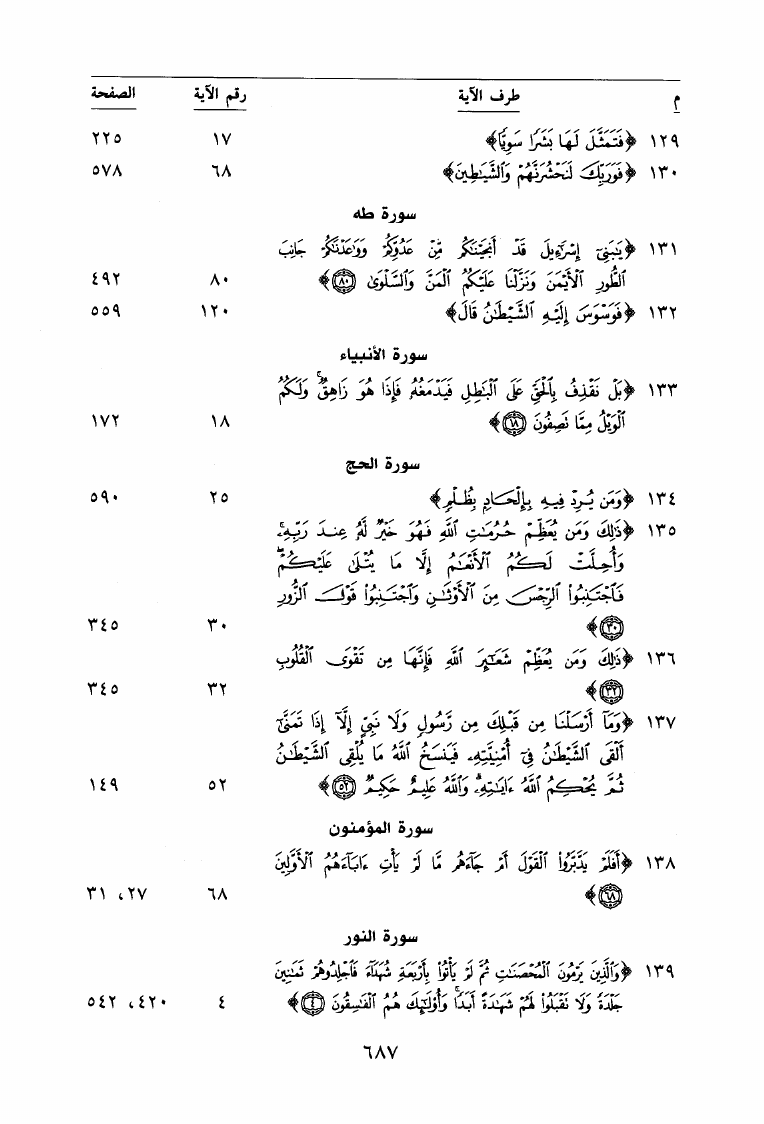 م طرف الآية رقم الآية الصفحة
١٢٩ ﴿فَتَمَثَّلَ لَهَا بَشَرًا سَوِيًّا﴾ ١٧ ٢٢٥
١٣٠ ﴿فَوَرَبِّكَ لَنَحْشُرَنَّهُمْ وَالشَّيَاطِينَ﴾ ٦٨ ٥٧٨
سورة طه
١٣١ ﴿يَـٰبَنِىٓ إِسْرَٰٓءِيلَ قَدْ أَنجَيْنَـٰكُم مِّنْ عَدُوِّكُمْ وَوَٰعَدْنَـٰكُمْ جَانِبَ
الطُّورِ الْأَيْمَنَ وَنَزَّلْنَا عَلَيْكُمُ الْمَنَّ وَالسَّلْوَىٰ ٨٠﴾ ٨٠ ٤٩٢
١٣٢ ﴿فَوَسْوَسَ إِلَيْهِ الشَّيْطَـٰنُ قَالَ﴾ ١٢٠ ٥٥٩
سورة الأنبياء
١٣٣ ﴿بَلْ نَقْذِفُ بِالْحَقِّ عَلَى الْبَـٰطِلِ فَيَدْمَغُهُۥ فَإِذَا هُوَ زَاهِقٌ ۚ وَلَكُمُ
الْوَيْلُ مِمَّا تَصِفُونَ ١٨﴾ ١٨ ١٧٢
سورة الحج
١٣٤ ﴿وَمَن يُرِدْ فِيهِ بِإِلْحَادٍ بِظُلْمٍ﴾ ٢٥ ٥٩٠
١٣٥ ﴿ذَٰلِكَ وَمَن يُعَظِّمْ حُرُمَـٰتِ اللَّهِ فَهُوَ خَيْرٌ لَّهُۥ عِندَ رَبِّهِۦ ۗ
وَأُحِلَّتْ لَكُمُ الْأَنْعَـٰمُ إِلَّا مَا يُتْلَىٰ عَلَيْكُمْ ۖ
فَاجْتَنِبُوا الرِّجْسَ مِنَ الْأَوْثَـٰنِ وَاجْتَنِبُوا قَوْلَ الزُّورِ
٣٠﴾ ٣٠ ٣٤٥
١٣٦ ﴿ذَٰلِكَ وَمَن يُعَظِّمْ شَعَـٰٓئِرَ اللَّهِ فَإِنَّهَا مِن تَقْوَى الْقُلُوبِ
٣٢﴾ ٣٢ ٣٤٥
١٣٧ ﴿وَمَآ أَرْسَلْنَا مِن قَبْلِكَ مِن رَّسُولٍ وَلَا نَبِىٍّ إِلَّآ إِذَا تَمَنَّىٰٓ
أَلْقَى الشَّيْطَـٰنُ فِىٓ أُمْنِيَّتِهِۦ فَيَنسَخُ اللَّهُ مَا يُلْقِى الشَّيْطَـٰنُ
ثُمَّ يُحْكِمُ اللَّهُ ءَايَـٰتِهِۦ ۗ وَاللَّهُ عَلِيمٌ حَكِيمٌ ٥٢﴾ ٥٢ ١٤٩
سورة المؤمنون
١٣٨ ﴿أَفَلَمْ يَدَّبَّرُوا الْقَوْلَ أَمْ جَآءَهُم مَّا لَمْ يَأْتِ ءَابَآءَهُمُ الْأَوَّلِينَ
٦٨﴾ ٦٨ ٢٧، ٣١
سورة النور
١٣٩ ﴿وَالَّذِينَ يَرْمُونَ الْمُحْصَنَـٰتِ ثُمَّ لَمْ يَأْتُوا بِأَرْبَعَةِ شُهَدَآءَ فَاجْلِدُوهُمْ ثَمَـٰنِينَ
جَلْدَةً وَلَا تَقْبَلُوا لَهُمْ شَهَـٰدَةً أَبَدًا ۚ وَأُولَـٰٓئِكَ هُمُ الْفَـٰسِقُونَ ٤﴾ ٤ ٤٢٠، ٥٤٢
٦٨٧